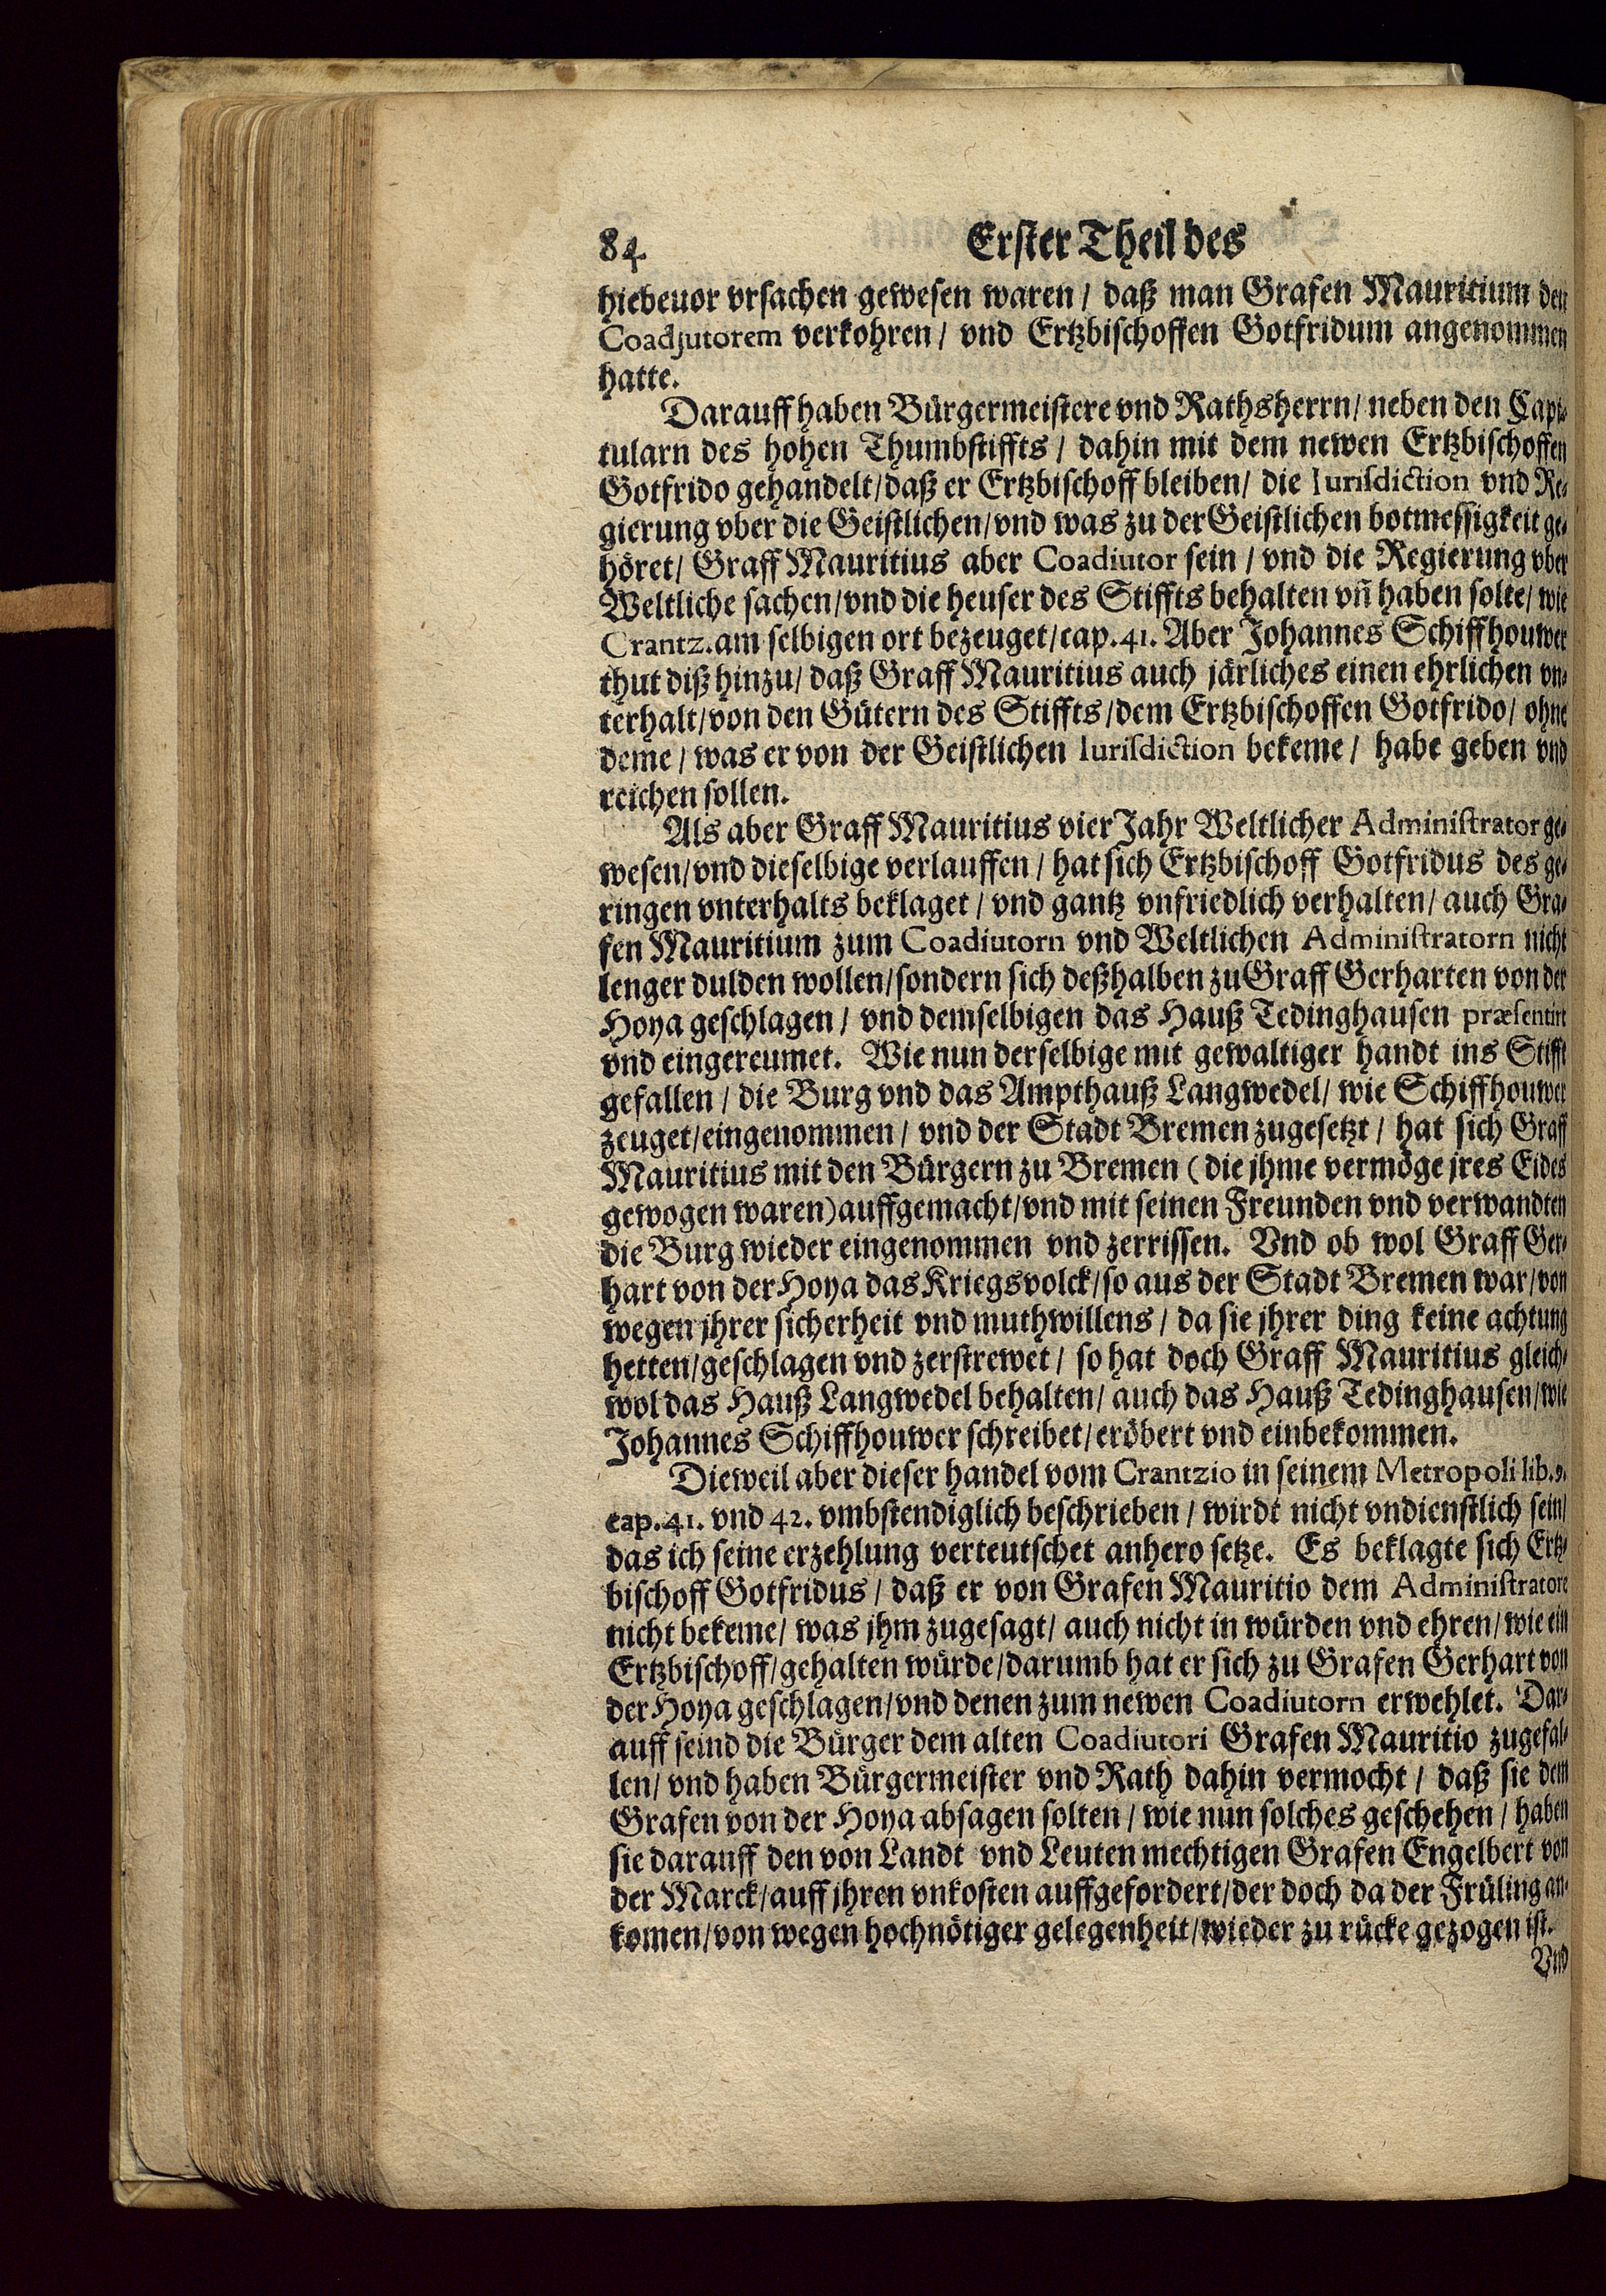 84. Erster Theil des
hiebeuor vrsachen gewesen waren / daß man Grafen Mauritium den
Coadjutorem verkohren / vnd Ertzbischoffen Gotfridum angenommen
hatte.
Darauff haben Bürgermeistere vnd Rathsherrn / neben den Capi-
tularn des hohen Thumbstiffts / dahin mit dem newen Ertzbischoffen
Gotfrido gehandelt / daß er Ertzbischoff bleiben / die Iurisdiction vnd Re-
gierung vber die Geistlichen / vnd was zu der Geistlichen botmessigkeit ge-
höret / Graff Mauritius aber Coadiutor sein / vnd die Regierung vber
Weltliche sachen / vnd die heuser des Stiffts behalten vñ haben solte / wie
Crantz. am selbigen ort bezeuget / cap. 41. Aber Johannes Schiffhouwer
thut diß hinzu / daß Graff Mauritius auch järliches einen ehrlichen vn-
terhalt / von den Gütern des Stiffts / dem Ertzbischoffen Gotfrido / ohne
deme / was er von der Geistlichen Iurisdiction bekeme / habe geben vnd
reichen sollen.
Als aber Graff Mauritius vier Jahr Weltlicher Administrator ge-
wesen / vnd dieselbige verlauffen / hat sich Ertzbischoff Gotfridus des ge-
ringen vnterhalts beklaget / vnd gantz vnfriedlich verhalten / auch Gra-
fen Mauritium zum Coadiutorn vnd Weltlichen Administratorn nicht
lenger dulden wollen / sondern sich deßhalben zu Graff Gerharten von der
Hoya geschlagen / vnd demselbigen das Hauß Tedinghausen præsentirt
vnd eingereumet. Wie nun derselbige mit gewaltiger handt ins Stifft
gefallen / die Burg vnd das Ampthauß Langwedel / wie Schiffhouwer
zeuget / eingenommen / vnd der Stadt Bremen zugesetzt / hat sich Graff
Mauritius mit den Bürgern zu Bremen (die jhme vermöge jres Eides
gewogen waren) auffgemacht / vnd mit seinen Freunden vnd verwandten
die Burg wieder eingenommen vnd zerrissen. Vnd ob wol Graff Ger-
hart von der Hoya das Kriegsvolck / so aus der Stadt Bremen war / von
wegen jhrer sicherheit vnd muthwillens / da sie jhrer ding keine achtung
hetten / geschlagen vnd zerstrewet / so hat doch Graff Mauritius gleich-
wol das Hauß Langwedel behalten / auch das Hauß Tedinghausen / wie
Johannes Schiffhouwer schreibet / eröbert vnd einbekommen.
Dieweil aber dieser handel vom Crantzio in seinem Metropoli lib. 9.
cap. 41. vnd 42. vmbstendiglich beschrieben / wirdt nicht vndienstlich sein /
das ich seine erzehlung verteutschet anhero setze. Es beklagte sich Ertz-
bischoff Gotfridus / daß er von Grafen Mauritio dem Administratore
nicht bekeme / was jhm zugesagt / auch nicht in würden vnd ehren / wie ein
Ertzbischoff / gehalten würde / darumb hat er sich zu Grafen Gerhart von
der Hoya geschlagen / vnd denen zum newen Coadiutorn erwehlet. Dar-
auff seind die Bürger dem alten Coadiutori Grafen Mauritio zugefal-
len / vnd haben Bürgermeister vnd Rath dahin vermocht / daß sie dem
Grafen von der Hoya absagen solten / wie nun solches geschehen / haben
sie darauff den von Landt vnd Leuten mechtigen Grafen Engelbert von
der Marck / auff jhren vnkosten auffgefordert / der doch da der Früling an-
komen / von wegen hochnötiger gelegenheit / wieder zu rücke gezogen ist.
Vnd